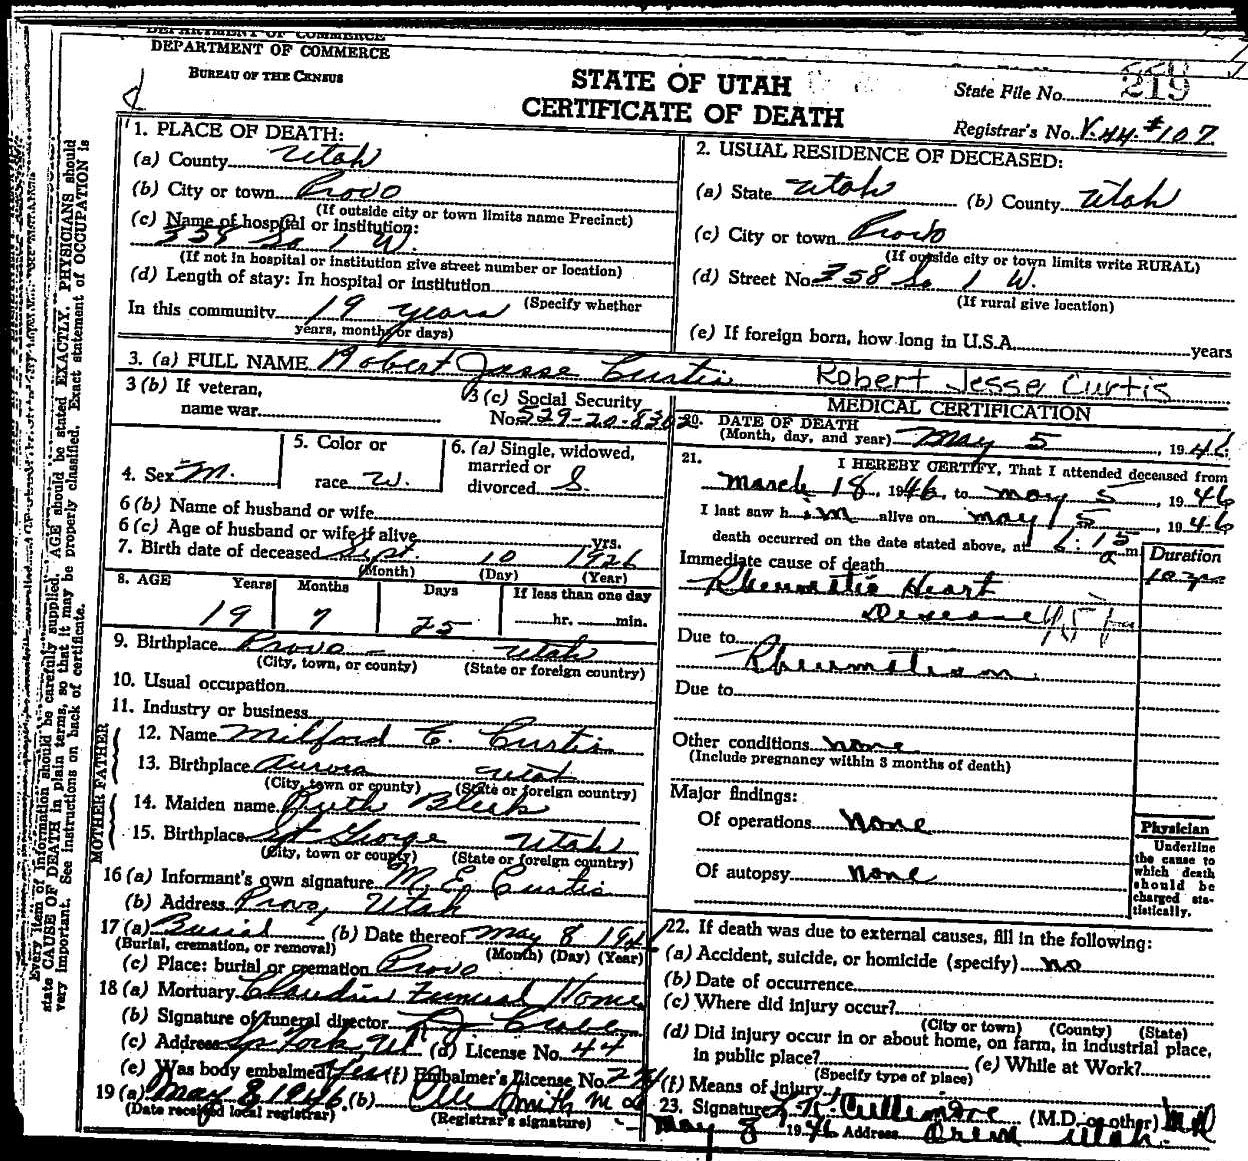 DEPARTMENT OF COMMERCE
DEPARTMENT OF COMMERCE
BUREAU OF THE CENSUS
STATE OF UTAH
CERTIFICATE OF DEATH
State File No. 219
Registrar's No. V.44.#107
Every item of information should be carefully supplied. AGE should be stated EXACTLY. PHYSICIANS should
state CAUSE OF DEATH in plain terms, so that it may be properly classified. Exact statement of OCCUPATION is
very important. See instructions on back of certificate.
1. PLACE OF DEATH:
(a) County Utah
(b) City or town Provo
(If outside city or town limits name Precinct)
(c) Name of hospital or institution:
358 So 1 W.
(If not in hospital or institution give street number or location)
(d) Length of stay: In hospital or institution
(Specify whether
In this community 19 years
years, months or days)
2. USUAL RESIDENCE OF DECEASED:
(a) State Utah (b) County Utah
(c) City or town Provo
(If outside city or town limits write RURAL)
(d) Street No. 358 So 1 W.
(If rural give location)
(e) If foreign born, how long in U.S.A. years
3. (a) FULL NAME Robert Jesse Curtis Robert Jesse Curtis
3 (b) If veteran,
name war
3 (c) Social Security
No. 529-20-8302
4. Sex M.
5. Color or
race W.
6. (a) Single, widowed,
married or
divorced S.
6 (b) Name of husband or wife
6 (c) Age of husband or wife if alive yrs.
7. Birth date of deceased Sept. 10 1926
(Month) (Day) (Year)
8. AGE Years Months Days If less than one day
19 7 25 hr. min.
9. Birthplace Provo - Utah
(City, town, or county) (State or foreign country)
10. Usual occupation
11. Industry or business
FATHER
12. Name Milford E. Curtis
13. Birthplace Aurora Utah
(City, town or county) (State or foreign country)
MOTHER
14. Maiden name Ruth Bleak
15. Birthplace St George Utah
(City, town or county) (State or foreign country)
16 (a) Informant's own signature M. E. Curtis
(b) Address Provo, Utah
17 (a) Burial (b) Date thereof May 8 1946
(Burial, cremation, or removal) (Month) (Day) (Year)
(c) Place: burial or cremation Provo
18 (a) Mortuary Claudin Funeral Home
(b) Signature of funeral director
(c) Address Sp Fork Ut (d) License No. 44
(e) Was body embalmed Yes (f) Embalmer's License No. 224
19 (a) May 8, 1946. (b) Smith M D
(Date received local registrar) (Registrar's signature)
MEDICAL CERTIFICATION
20. DATE OF DEATH
(Month, day, and year) May 5, 1946
21. I HEREBY CERTIFY, That I attended deceased from
March 18, 1946, to May 5, 1946
I last saw him alive on May 5, 1946
death occurred on the date stated above, at 6:15 a m
Duration
Immediate cause of death 10 yrs
Rheumatic Heart
Disease
Due to
Rheumatism.
Due to
Other conditions none
(Include pregnancy within 3 months of death)
Major findings:
Of operations None
Of autopsy none
Physician
Underline
the cause to
which death
should be
charged sta-
tistically.
22. If death was due to external causes, fill in the following:
(a) Accident, suicide, or homicide (specify) no
(b) Date of occurrence
(c) Where did injury occur?
(City or town) (County) (State)
(d) Did injury occur in or about home, on farm, in industrial place,
in public place? (e) While at Work?
(Specify type of place)
(f) Means of injury
23. Signature Cullimore (M.D. or other) MD
May 8 1946 Address Orem Utah.